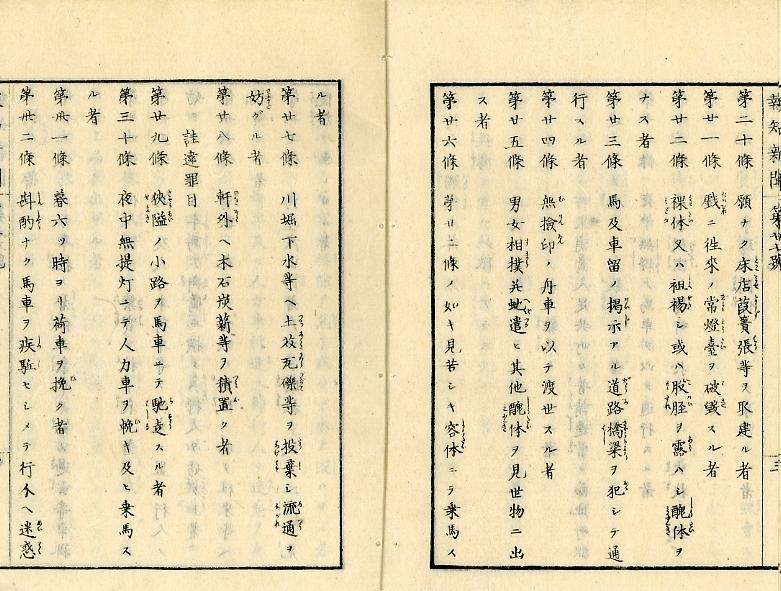 報知新聞 第廿七號
三
第二十條 願ナク床店葭簀張等ヲ取建ル者
第廿一條 戯ニ往來ノ常燈臺ヲ破毀スル者
第廿二條 裸体又ハ袒裼シ或ハ股脛ヲ露ハシ醜体ヲ
ナス者
第廿三條 馬及車留ノ掲示アル道路橋梁ヲ犯シテ通
行スル者
第廿四條 無撿印ノ舟車ヲ以テ渡世スル者
第廿五條 男女相撲并蛇遣ヒ其他醜体ヲ見世物ニ出
ス者
第廿六條 第廿二條ノ如キ見苦シキ容体ニテ乗馬ス
ル者
第廿七條 川堀下水等ヘ土芥瓦礫等ヲ投棄シ流通ヲ
妨グル者
第廿八條 軒外ヘ木石炭薪等ヲ積置ク者
詿違罪目
第廿九條 狹隘ノ小路ヲ馬車ニテ馳走スル者
第三十條 夜中無提灯ニテ人力車ヲ輓キ及ヒ乗馬ス
ル者
第卅一條 暮六ツ時ヨリ荷車ヲ挽ク者
第卅二條 斟酌ナク馬車ヲ疾駈セシメテ行人ヘ迷惑